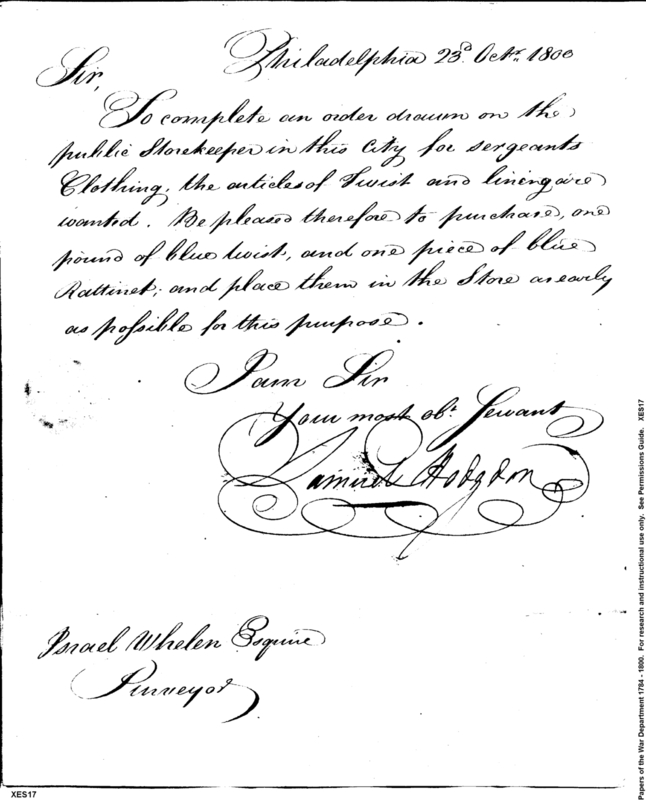 Philadelphia 23d. Octr. 1800
Sir,
To complete an order drawn on the
public Storekeeper in this City for sergeants
Clothing, the articles of Twist and lining are
wanted. Be pleased therefore to purchase, one
pound of blue twist, and one piece of blue
Rattinet; and place them in the Store as early
as possible for this purpose.
I am Sir
Your most obt. Servant
Samuel Hodgdon
Israel Whelen Esquire
Purveyor
XES17
Papers of the War Department 1784 - 1800. For research and instructional use only. See Permissions Guide. XES17